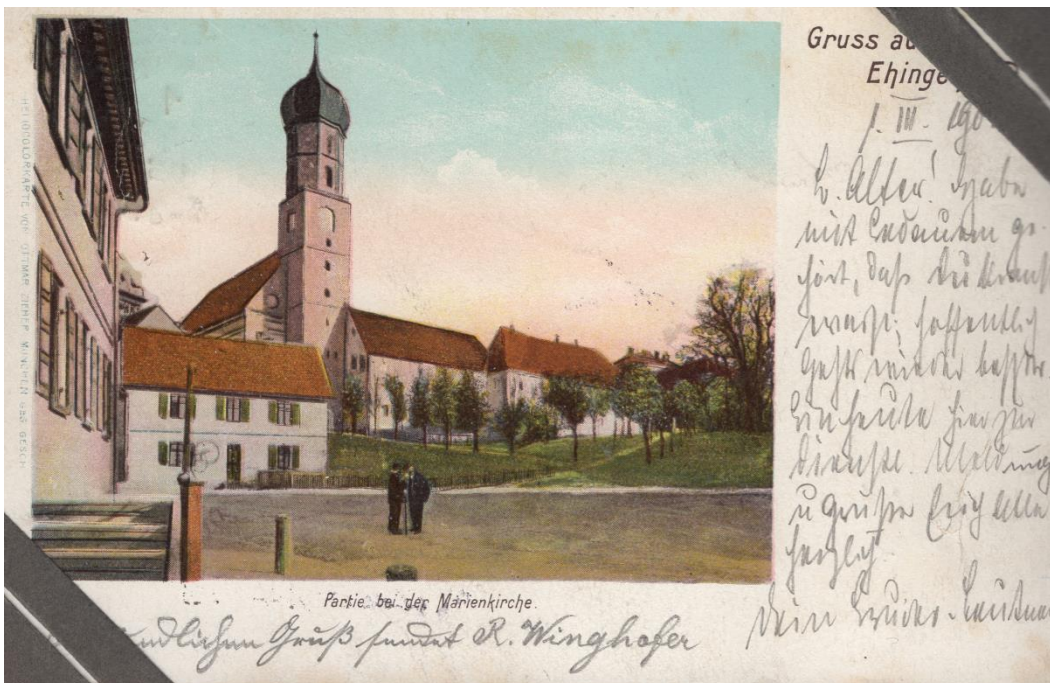 Gruss au
Ehinge
1. III. 190
L. Alter! Habe
mit Bedauern ge-
hört, daß Du krank
warst; hoffentlich
gehts wieder besser.
Bin heute hier zur
dienstl. Meldung
u grüße Euch Alle
herzlich.
Dein Bruder
Partie bei der Marienkirche.
Gruß sendet R. Winghofer
HELIOCOLORKARTE VON OTTMAR ZIEHER, MÜNCHEN GES. GESCH.